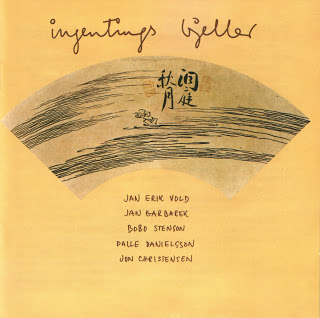 ingentings bjeller
洞庭
秋月
JAN ERIK VOLD
JAN GARBAREK
BOBO STENSON
PALLE DANIELSSON
JON CHRISTENSEN